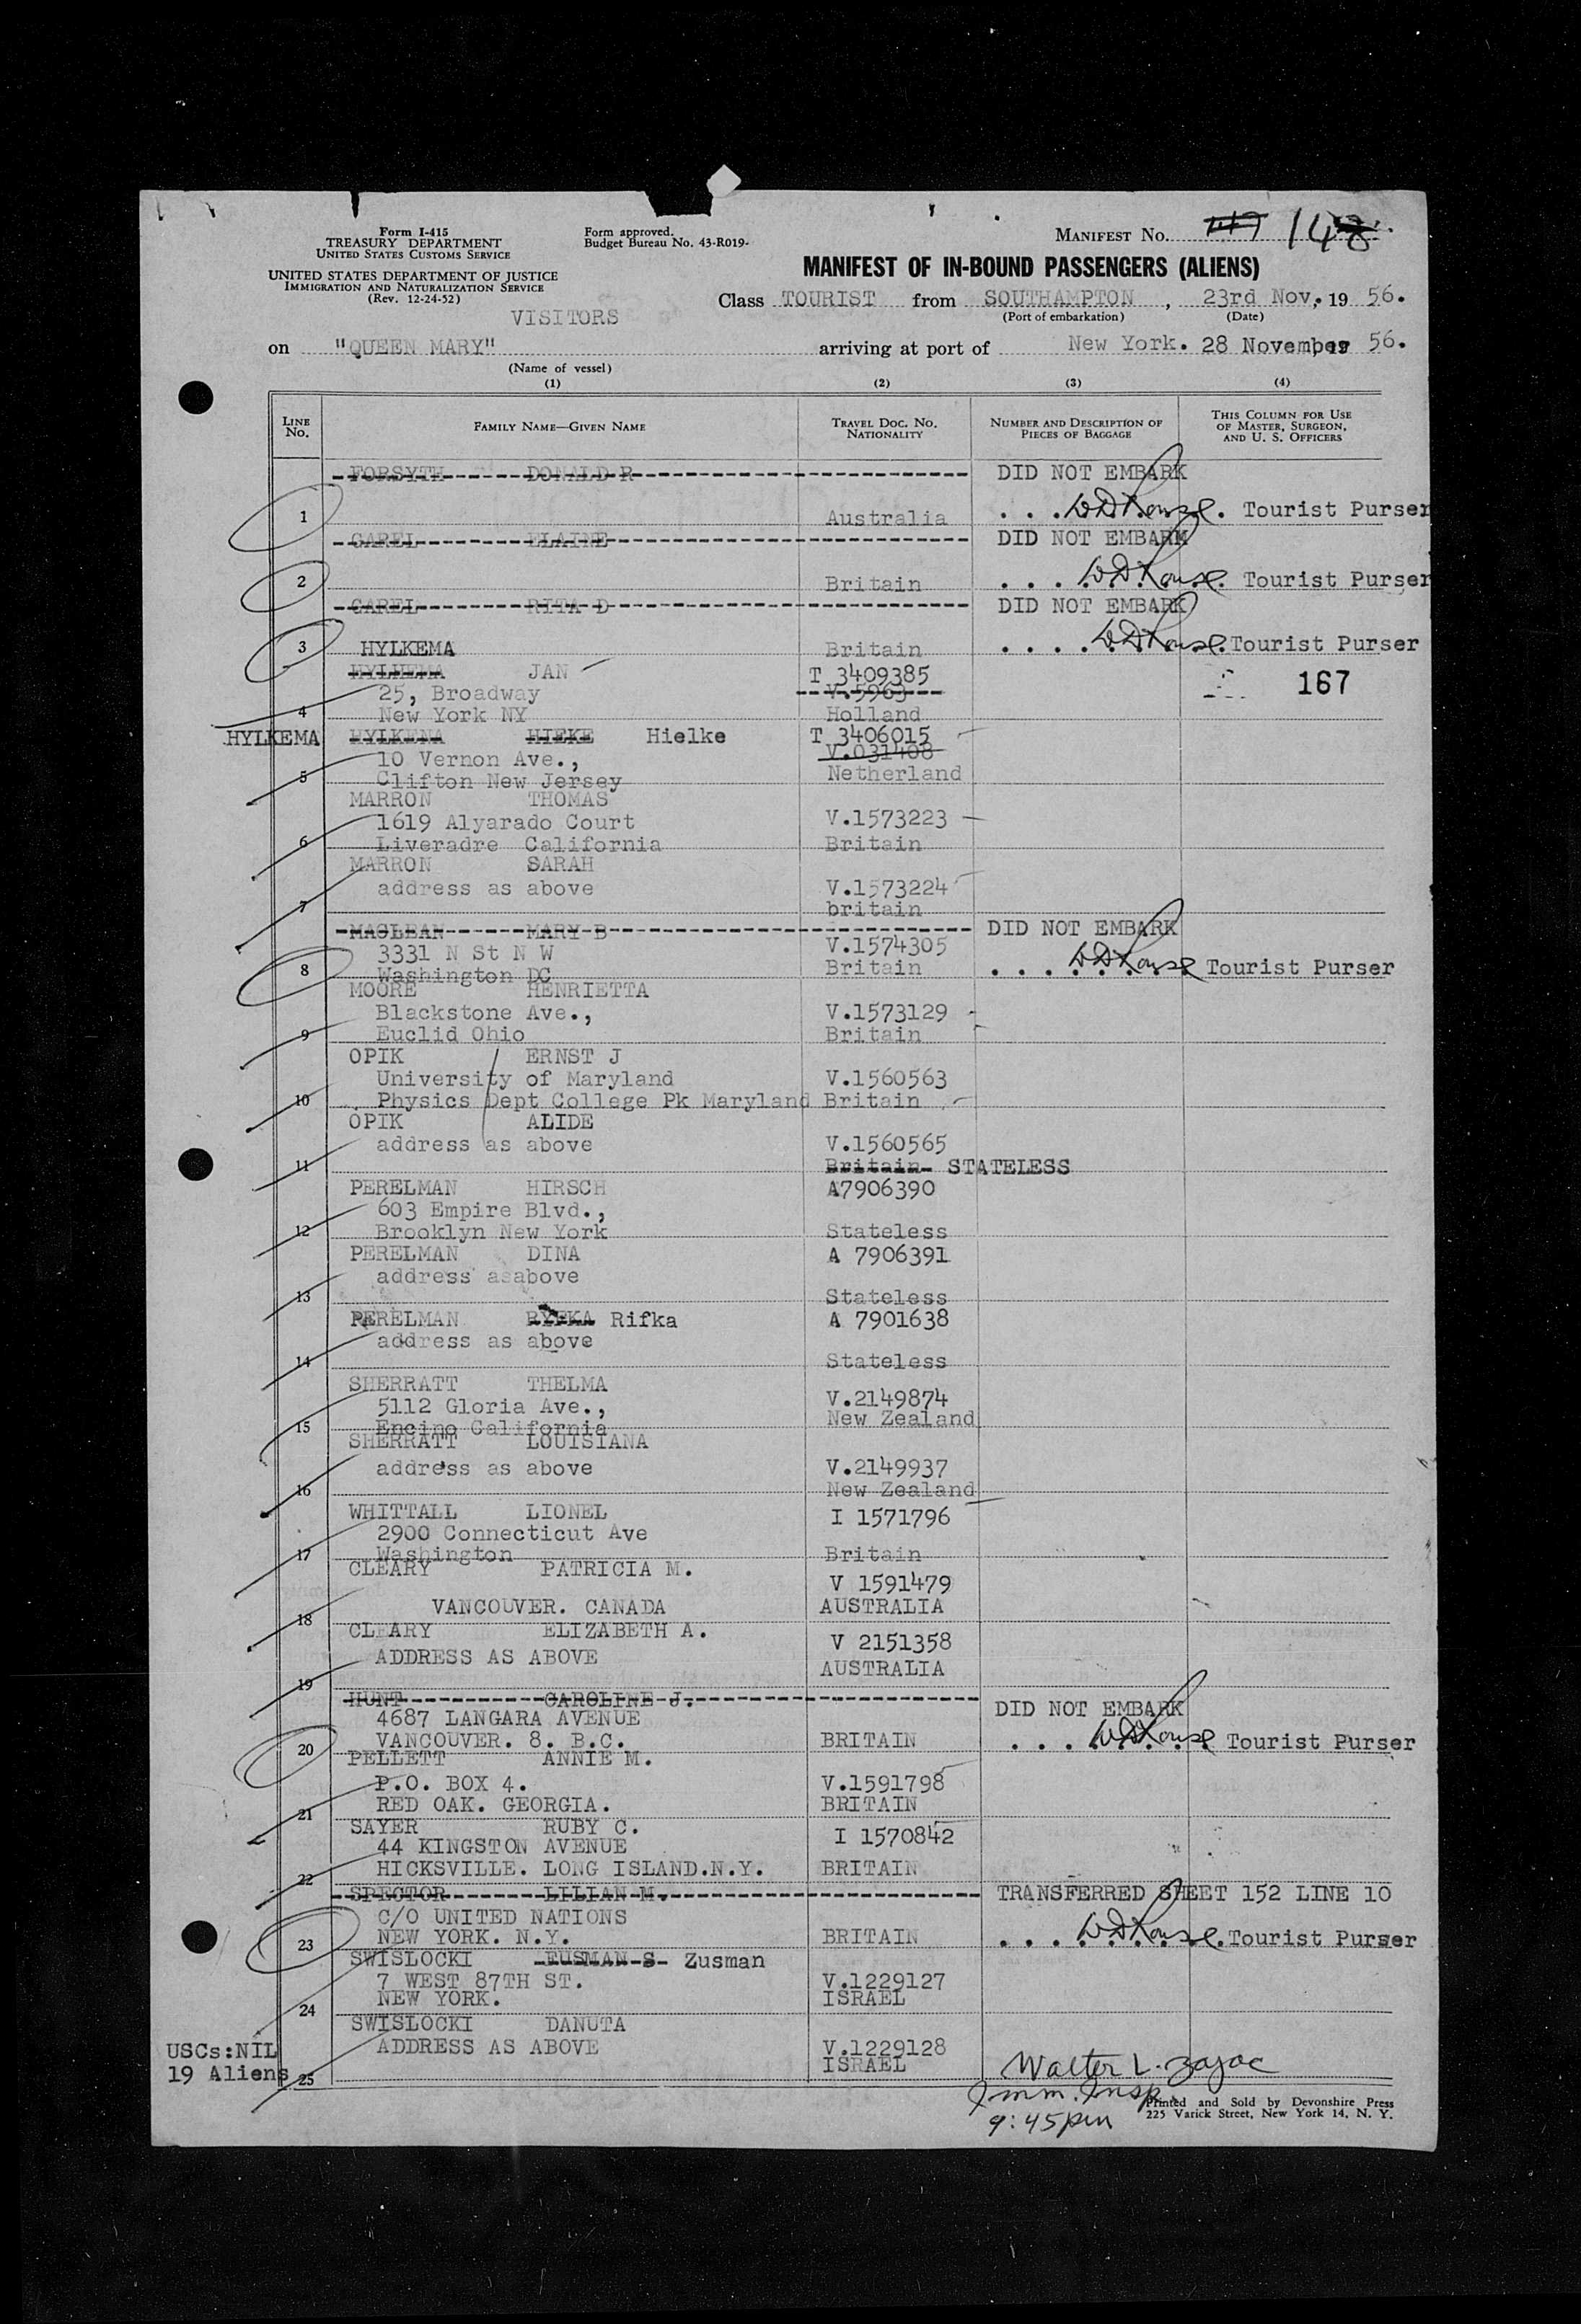 Form I-415
TREASURY DEPARTMENT
UNITED STATES CUSTOMS SERVICE
UNITED STATES DEPARTMENT OF JUSTICE
IMMIGRATION AND NATURALIZATION SERVICE
(Rev. 12-24-52)
Form approved.
Budget Bureau No. 43-R019-
MANIFEST NO. 148
MANIFEST OF IN-BOUND PASSENGERS (ALIENS)
Class TOURIST from SOUTHAMPTON, 23rd Nov, 19 56.
(Port of embarkation) (Date)
VISITORS
on "QUEEN MARY" arriving at port of New York. 28 November 19 56.
(Name of vessel)
(1) (2) (3) (4)
LINE NO.
FAMILY NAME—GIVEN NAME
TRAVEL DOC. NO. NATIONALITY
NUMBER AND DESCRIPTION OF PIECES OF BAGGAGE
THIS COLUMN FOR USE OF MASTER, SURGEON, AND U. S. OFFICERS
FORSYTH DONALD R DID NOT EMBARK
1 Australia Tourist Purser
GAREL ELAINE DID NOT EMBARK
2 Britain Tourist Purser
GAREL RITA D DID NOT EMBARK
3 HYLKEMA Britain Tourist Purser
HYLHEMA JAN T 3409385 167
25, Broadway V.5963
4 New York NY Holland
HYLKEMA HYLKENA HIEKE Hielke T 3406015
10 Vernon Ave., V.031408
5 Clifton New Jersey Netherland
MARRON THOMAS
1619 Alyarado Court V.1573223
6 Liveradre California Britain
MARRON SARAH
address as above V.1573224
7 britain
MACLEAN MARY B DID NOT EMBARK
3331 N St N W V.1574305
8 Washington DC Britain Tourist Purser
MOORE HENRIETTA
Blackstone Ave., V.1573129
9 Euclid Ohio Britain
OPIK ERNST J
University of Maryland V.1560563
10 Physics Dept College Pk Maryland Britain
OPIK ALIDE
address as above V.1560565
11 Britain STATELESS
PERELMAN HIRSCH A7906390
603 Empire Blvd.,
12 Brooklyn New York Stateless
PERELMAN DINA A 7906391
address asabove
13 Stateless
PERELMAN RYFKA Rifka A 7901638
address as above
14 Stateless
SHERRATT THELMA
5112 Gloria Ave., V.2149874
15 Encino California New Zealand
SHERRATT LOUISIANA
address as above V.2149937
16 New Zealand
WHITTALL LIONEL I 1571796
2900 Connecticut Ave
17 Washington Britain
CLEARY PATRICIA M. V 1591479
18 VANCOUVER. CANADA AUSTRALIA
CLEARY ELIZABETH A. V 2151358
ADDRESS AS ABOVE AUSTRALIA
19
HUNT CAROLINE J. DID NOT EMBARK
4687 LANGARA AVENUE
20 VANCOUVER. 8. B.C. BRITAIN Tourist Purser
PELLETT ANNIE M.
P.O. BOX 4. V.1591798
21 RED OAK. GEORGIA. BRITAIN
SAYER RUBY C. I 1570842
44 KINGSTON AVENUE
22 HICKSVILLE. LONG ISLAND.N.Y. BRITAIN
SPECTOR LILIAN M. TRANSFERRED SHEET 152 LINE 10
C/O UNITED NATIONS
23 NEW YORK. N.Y. BRITAIN Tourist Purser
SWISLOCKI FUSMAN S Zusman
7 WEST 87TH ST. V.1229127
24 NEW YORK. ISRAEL
SWISLOCKI DANUTA
ADDRESS AS ABOVE V.1229128
25 ISRAEL
USCs:NIL
19 Aliens
Walter L. Zajac
Imm. Insp.
9:45pm
Printed and Sold by Devonshire Press
225 Varick Street, New York 14, N. Y.